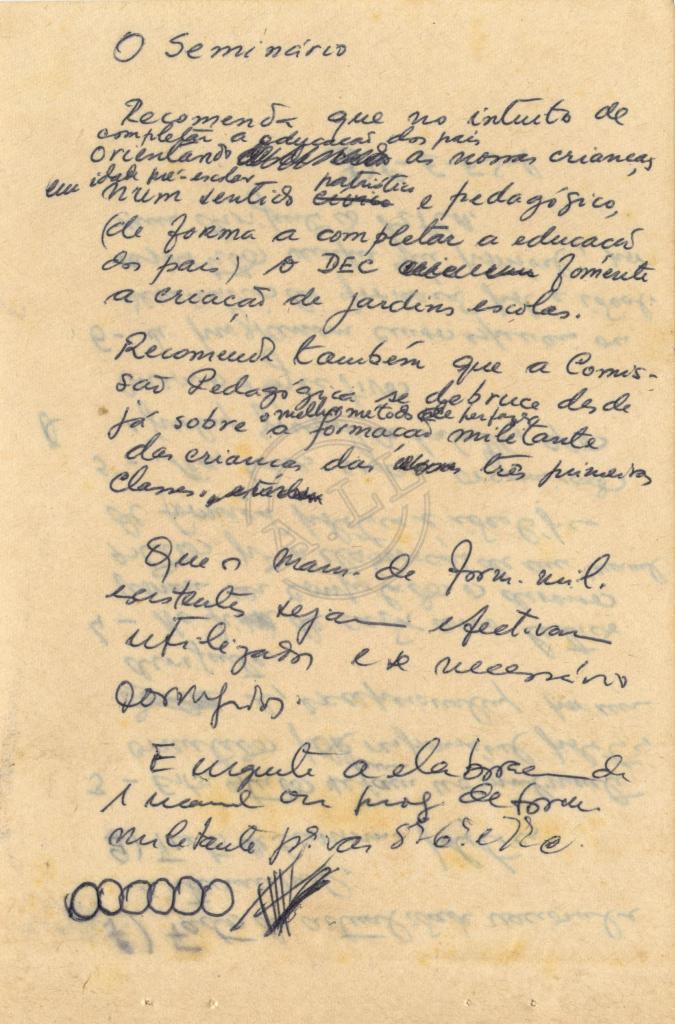 O Seminário
Recomenda que no intuito de
completar a educação dos pais
orientando as nossas crianças,
em idade pré-escolar patriótico
num sentido cívico e pedagógico,
(de forma a completar a educação
dos pais) o DEC fomente
a criação de jardins escolas.
Recomenda também que a Comis-
são Pedagógica se debruce desde
o melhor método de
já sobre a formação militante
das crianças das três primeiras
classes.
Que os man. de form. mil.
existentes sejam efectivam
utilizados e se necessário
corrigidos.
E urgente a elaboração de
1 manual ou prog de form.
militante p. as 5ª 6ª e 7ª c.
A.L.I